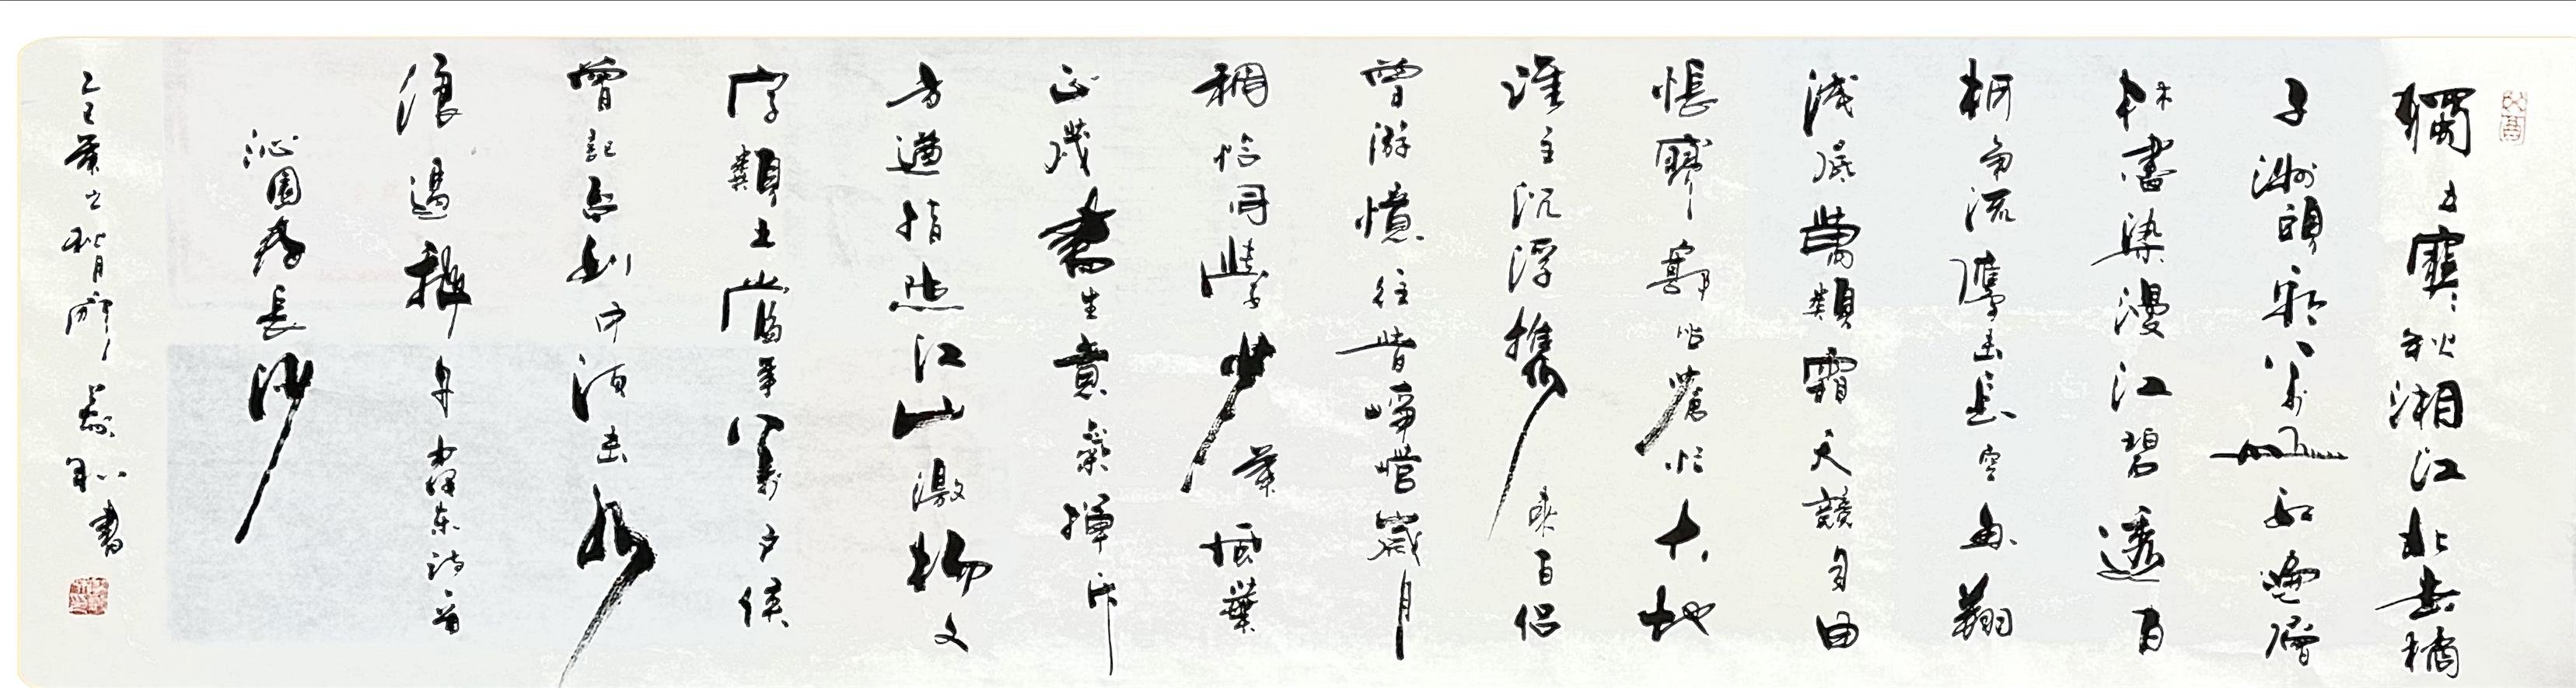 獨立寒秋湘江北去橘
子洲頭看萬山紅遍層
林盡染漫江碧透百
舸爭流鷹擊長空魚翔
淺底萬類霜天競自由
悵寥廓問蒼茫大地
誰主沉浮攜來百侶
曾游憶往昔崢嶸歲月
稠恰同學少年風華
正茂書生意氣揮斥
方遒指點江山激揚文
字土當年萬戶侯
曾記否到中流擊水
浪遏飛舟澤東詩首
沁園春長沙
乙巳年之秋月書